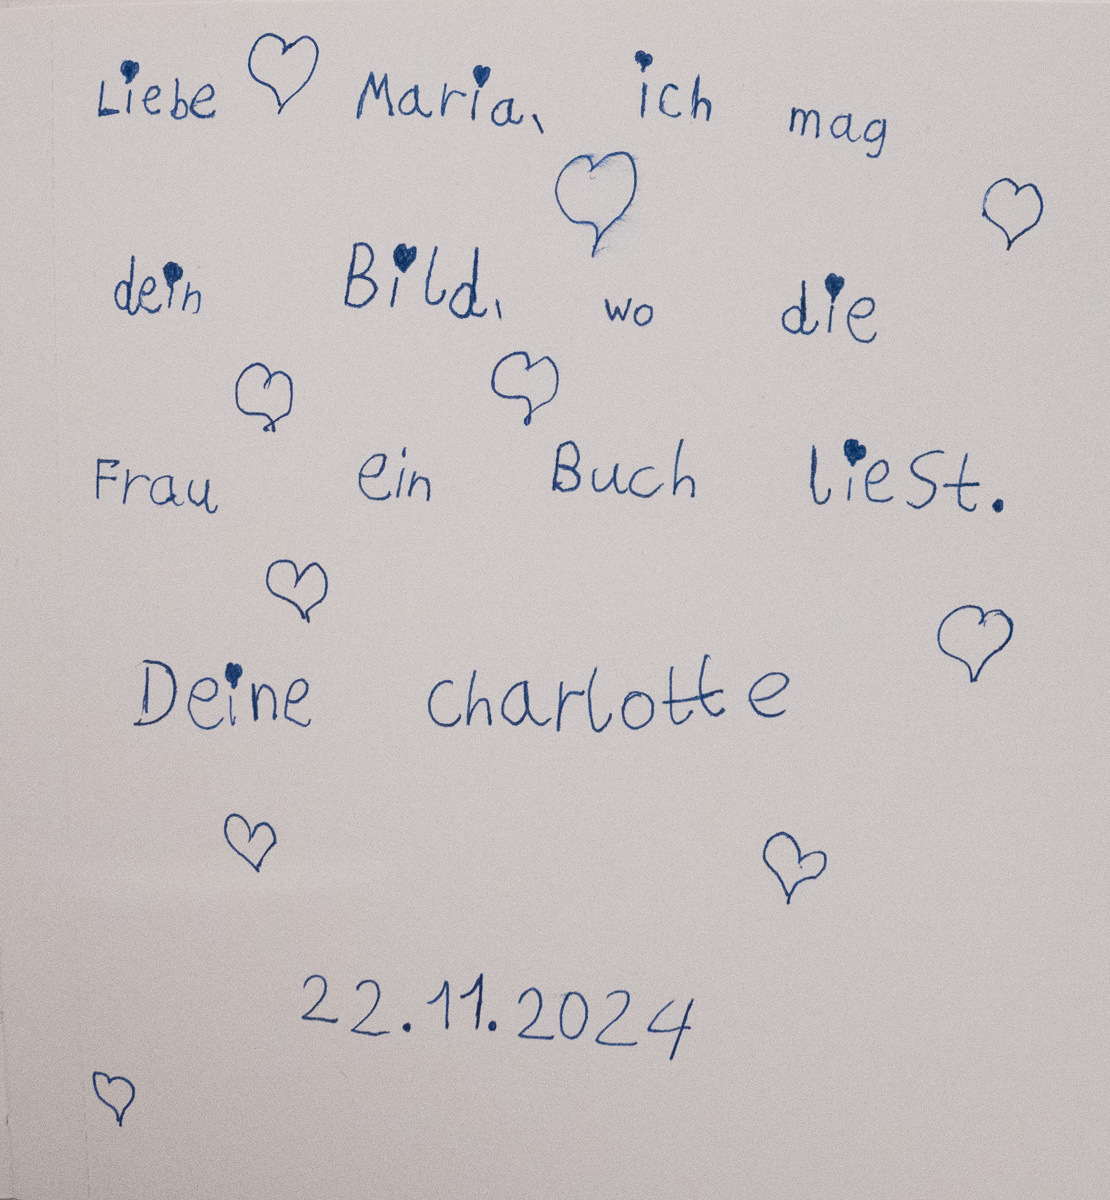 Liebe Maria, ich mag
dein Bild, wo die
Frau ein Buch liest.
Deine Charlotte
22.11.2024